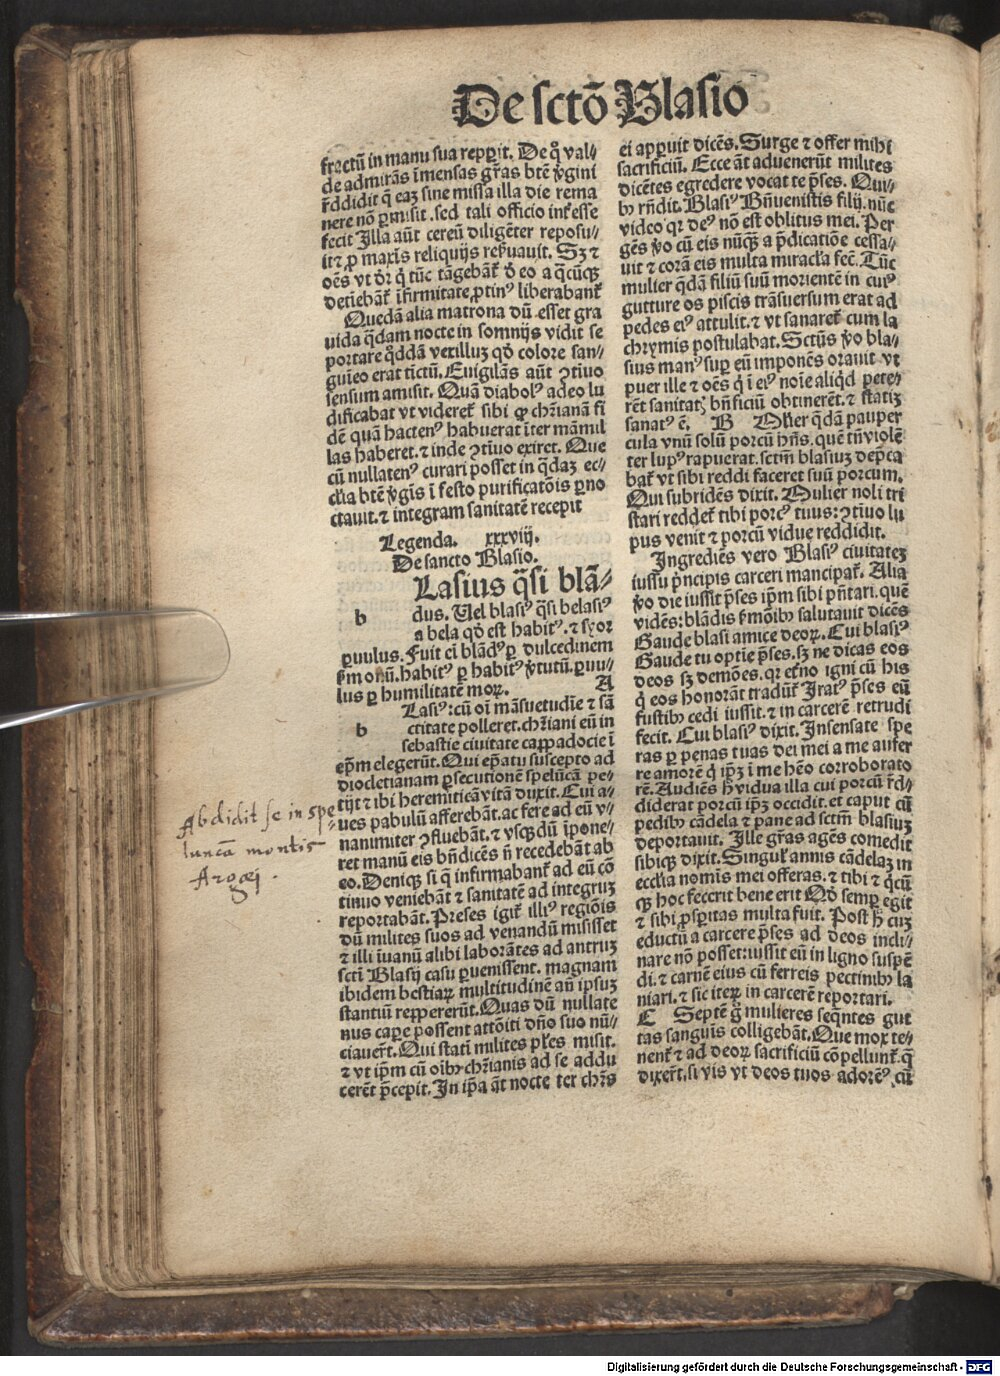 De sctō Blasio
fractū in manu sua repperit. De qͦ val⸗
de admirās īmensas grās btē vͥgini
rēddidit qͥ eaꝫ sine missa illa die rema
nere nō ꝑmisit. sed tali officio inťesse
fecit Illa aūt cereū diligēter reposu⸗
it ⁊ ꝓ maxīs reliquijs reſuauit. Sꝫ ⁊
oēs vt dr̄ qͥ tūc tāgebāť ꝺ eo a qͣcūqꝫ
detīebāť īfirmitate, ꝓtinꝰ liberabanť
Quedā alia matrona dū esset gra
uida qͣdam nocte in somnijs vidit se
portare qͦddā vexilluꝫ qꝺ colore san⸗
guīeo erat tictū. Euigilās aūt ꝯtiuo
sensum amisit. Quā diabolꝰ adeo lu
dificabat vt videreť sibi ꝙ chꝛianā fi
dē quā hactenꝰ habuerat īter māmil
las haberet. ⁊ inde ꝯtiuo exiret. Que
cū nullatenꝰ curari posset in qͣdaꝫ ec⸗
cīa btē vͥgīs ī festo purificatōis ꝑno
ctauit. ⁊ integram sanitatē recepit
Legenda. xxxviij.
De sancto Blasio.
Lasius qͣsi blā⸗
b dus. Uel blasiꝰ qͣsi belasiꝰ
a bela qꝺ est habitꝰ. ⁊ syor
ꝑuulus. Fuit eī blādꝰ ꝑ dulcedinem
ẜmonū. habitꝰ ꝑ habitū vͥtutū. ꝑuu⸗
lus ꝑ humilitatē moꝝ. A
Lasiꝰ: cū oī māsuetudīe ⁊ sā
b ctitate polleret. chꝛiani eū in
sebastie ciuitate cappadocie ī
epm̄ elegerūt. Qui ep̄atu suscepto ad
diocletianam ꝑsecutionē spelūcā pe⸗
tijt ⁊ ibi heremiticā vitā duxit. Cui a⸗
ues pabulū afferebāt. ac fere ad eū v⸗
nanimiter ꝯfluebāt. ⁊ vsqꝫ dū īpone⸗
ret manū eis bn̄dicēs n̄ recedebāt ab
eo. Deniqꝫ si qͥ infirmabanť ad eū cō
tinuo veniebāt ⁊ sanitatē ad integruꝫ
reportabāt. Preses igiť illiꝰ regiōis
dū milites suos ad venandū misisset
⁊ illi īuanū alibi laborātes ad antruꝫ
sctī Blasij casu ꝑuenissent. magnam
ibidem bestiaꝝ multitudinē an̄ ipsuꝫ
stantiū reꝑpererūt. Quas dū nullate
nus capꝑe possent attōiti dn̄o suo nū⸗
ciauerť. Qui statī milites ples misit.
⁊ vt ip̄m cū oībꝫ chꝛianis ad se addu
cerēt p̄cepit. In ip̄a āt nocte ter chꝛ̄s
ei apparuit dicēs. Surge ⁊ offer mihi
sacrificiū. Ecce āt aduenerūt milites
dicētes egredere vocat te p̄ses. Qui⸗
bꝫ rn̄dit. Blasiꝰ Bn̄uenistis filij. nūc
video qꝛ deꝰ nō est oblitus mei. Per
gēs vͦo cū eis nūqꝫ a p̄dicatiōe cessa⸗
uit ⁊ corā eis multa miracīa fec̄. Tūc
mulier qͣdā filiū suū morientē in cuiꝰ
gutture os piscis trāsuersum erat ad
pedes eiꝰ attulit. ⁊ vt sanareť cum la
chrymis postulabat. Sctūs vͦo bla⸗
sius manꝰ suꝑ eū imponēs orauit vt
puer ille ⁊ oēs qͥ ī eiꝰ noīe aliqͥd pete⸗
rēt sanitatꝭ bn̄ficiū obtinerēt. ⁊ statiꝫ
sanatꝰ ē. B Mlier qͣdā pauper
cula vnū solū porcū hn̄s. quē tn̄ violē
ter lupꝰ rapuerat. sctm̄ blasiuꝫ dep̄ca
baťvt sibi reddi faceret suū porcum.
Qui subridēs dixit. Mulier noli tri
stari reddeť tibi porcꝰ tuus: ꝯtiuo lu
pus venit ⁊ porcū vidue reddidit.
Ingrediēs vero Blasiꝰ ciuitateꝫ
iussu p̄ncipis carceri mancipať. Alia
vͦo die iussit p̄ses ip̄m sibi pn̄tari. quē
vidēs: blādis ẜmōibꝫ salutauit dicēs
Gaude blasi amice deoꝝ. Cui blasiꝰ
Gaude tu optīe p̄ses. sꝫ ne dicas eos
deos sꝫ demōes. qꝛ eťno igni cū his
qͥ eos honorāt tradūť Iratꝰ p̄ses eū
fustibꝫ cedi iussit. ⁊ in carcerē retrudi
fecit. Cui blasiꝰ dixit. Insensate spe
ras ꝑ penas tuas dei mei a me aufer
re amorē qͥ ip̄ꝫ ī me hēo corroborato
rē. Audiēs ħ vidua illa cui porcū r̄d⸗
diderat porcū ip̄ꝫ occidit. et caput cū
pedibꝫ cādela ⁊ pane ad sctm̄ blasiuꝫ
deportauit. Ille grās agēs comedit
sibiqꝫ dixit. Singuľ annis cādelaꝫ in
eccīa nomīs mei offeras. ⁊ tibi ⁊ qͥcū
qꝫ hoc fecerit bene erit Qꝺ semꝑ egit
⁊ sibi ꝓsꝑitas multa fuit. Post ħ cuꝫ
eductū a carcere p̄ses ad deos incli⸗
nare nō posset: iussit eū in ligno suspē
di. ⁊ carnē eius cū ferreis pectinibꝫ la
niari. ⁊ sic iteꝝ in carcerē reportari.
C Septē gͦ mulieres seqn̄tes gut
tas sanguīs colligebāt. Que mox te⸗
nenť ⁊ ad deoꝝ sacrificiū cōpellunť. qͥ
dixerť. si vis vt deos tuos adorēꝰ, cū
Abdidit se in spe⸗
luncā montis
Arogej.
Digitalisierung gefördert durch die Deutsche Forschungsgemeinschaft - DFG